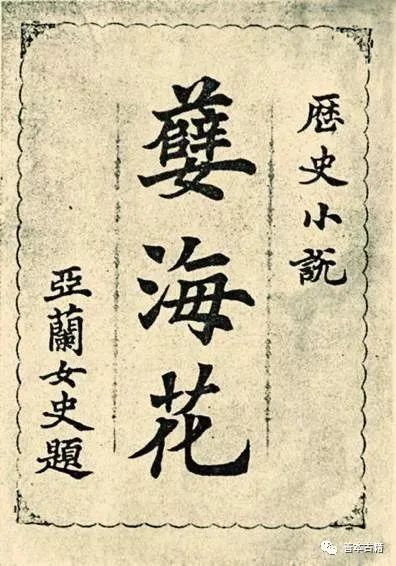 歷史小說
孽海花
亞蘭女史題
善本古籍